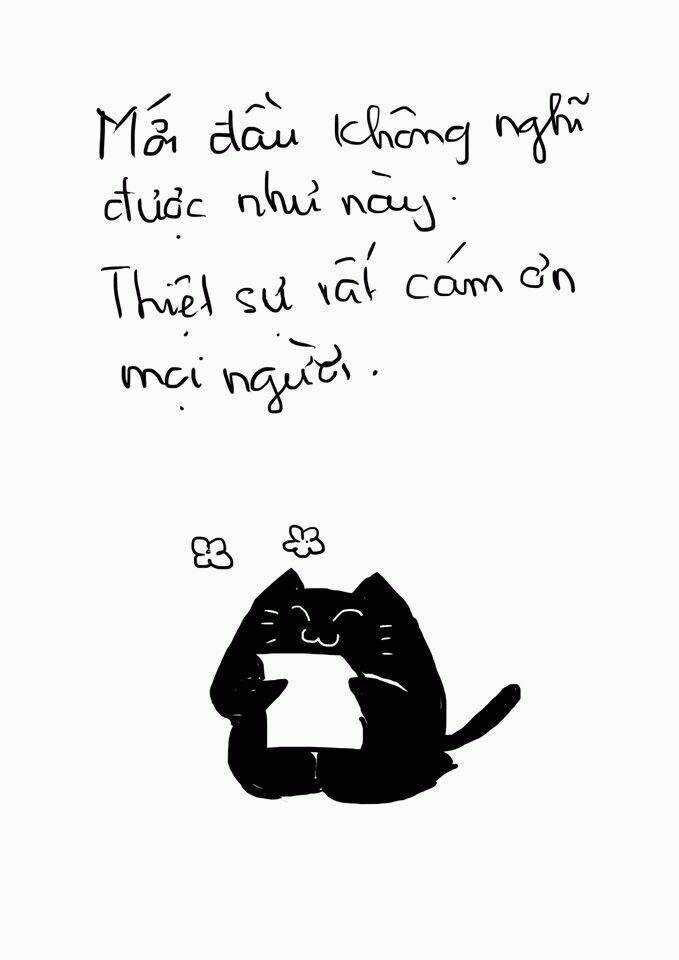 Mới đầu không nghĩ
được như này.
Thiệt sự rất cám ơn
mọi người.